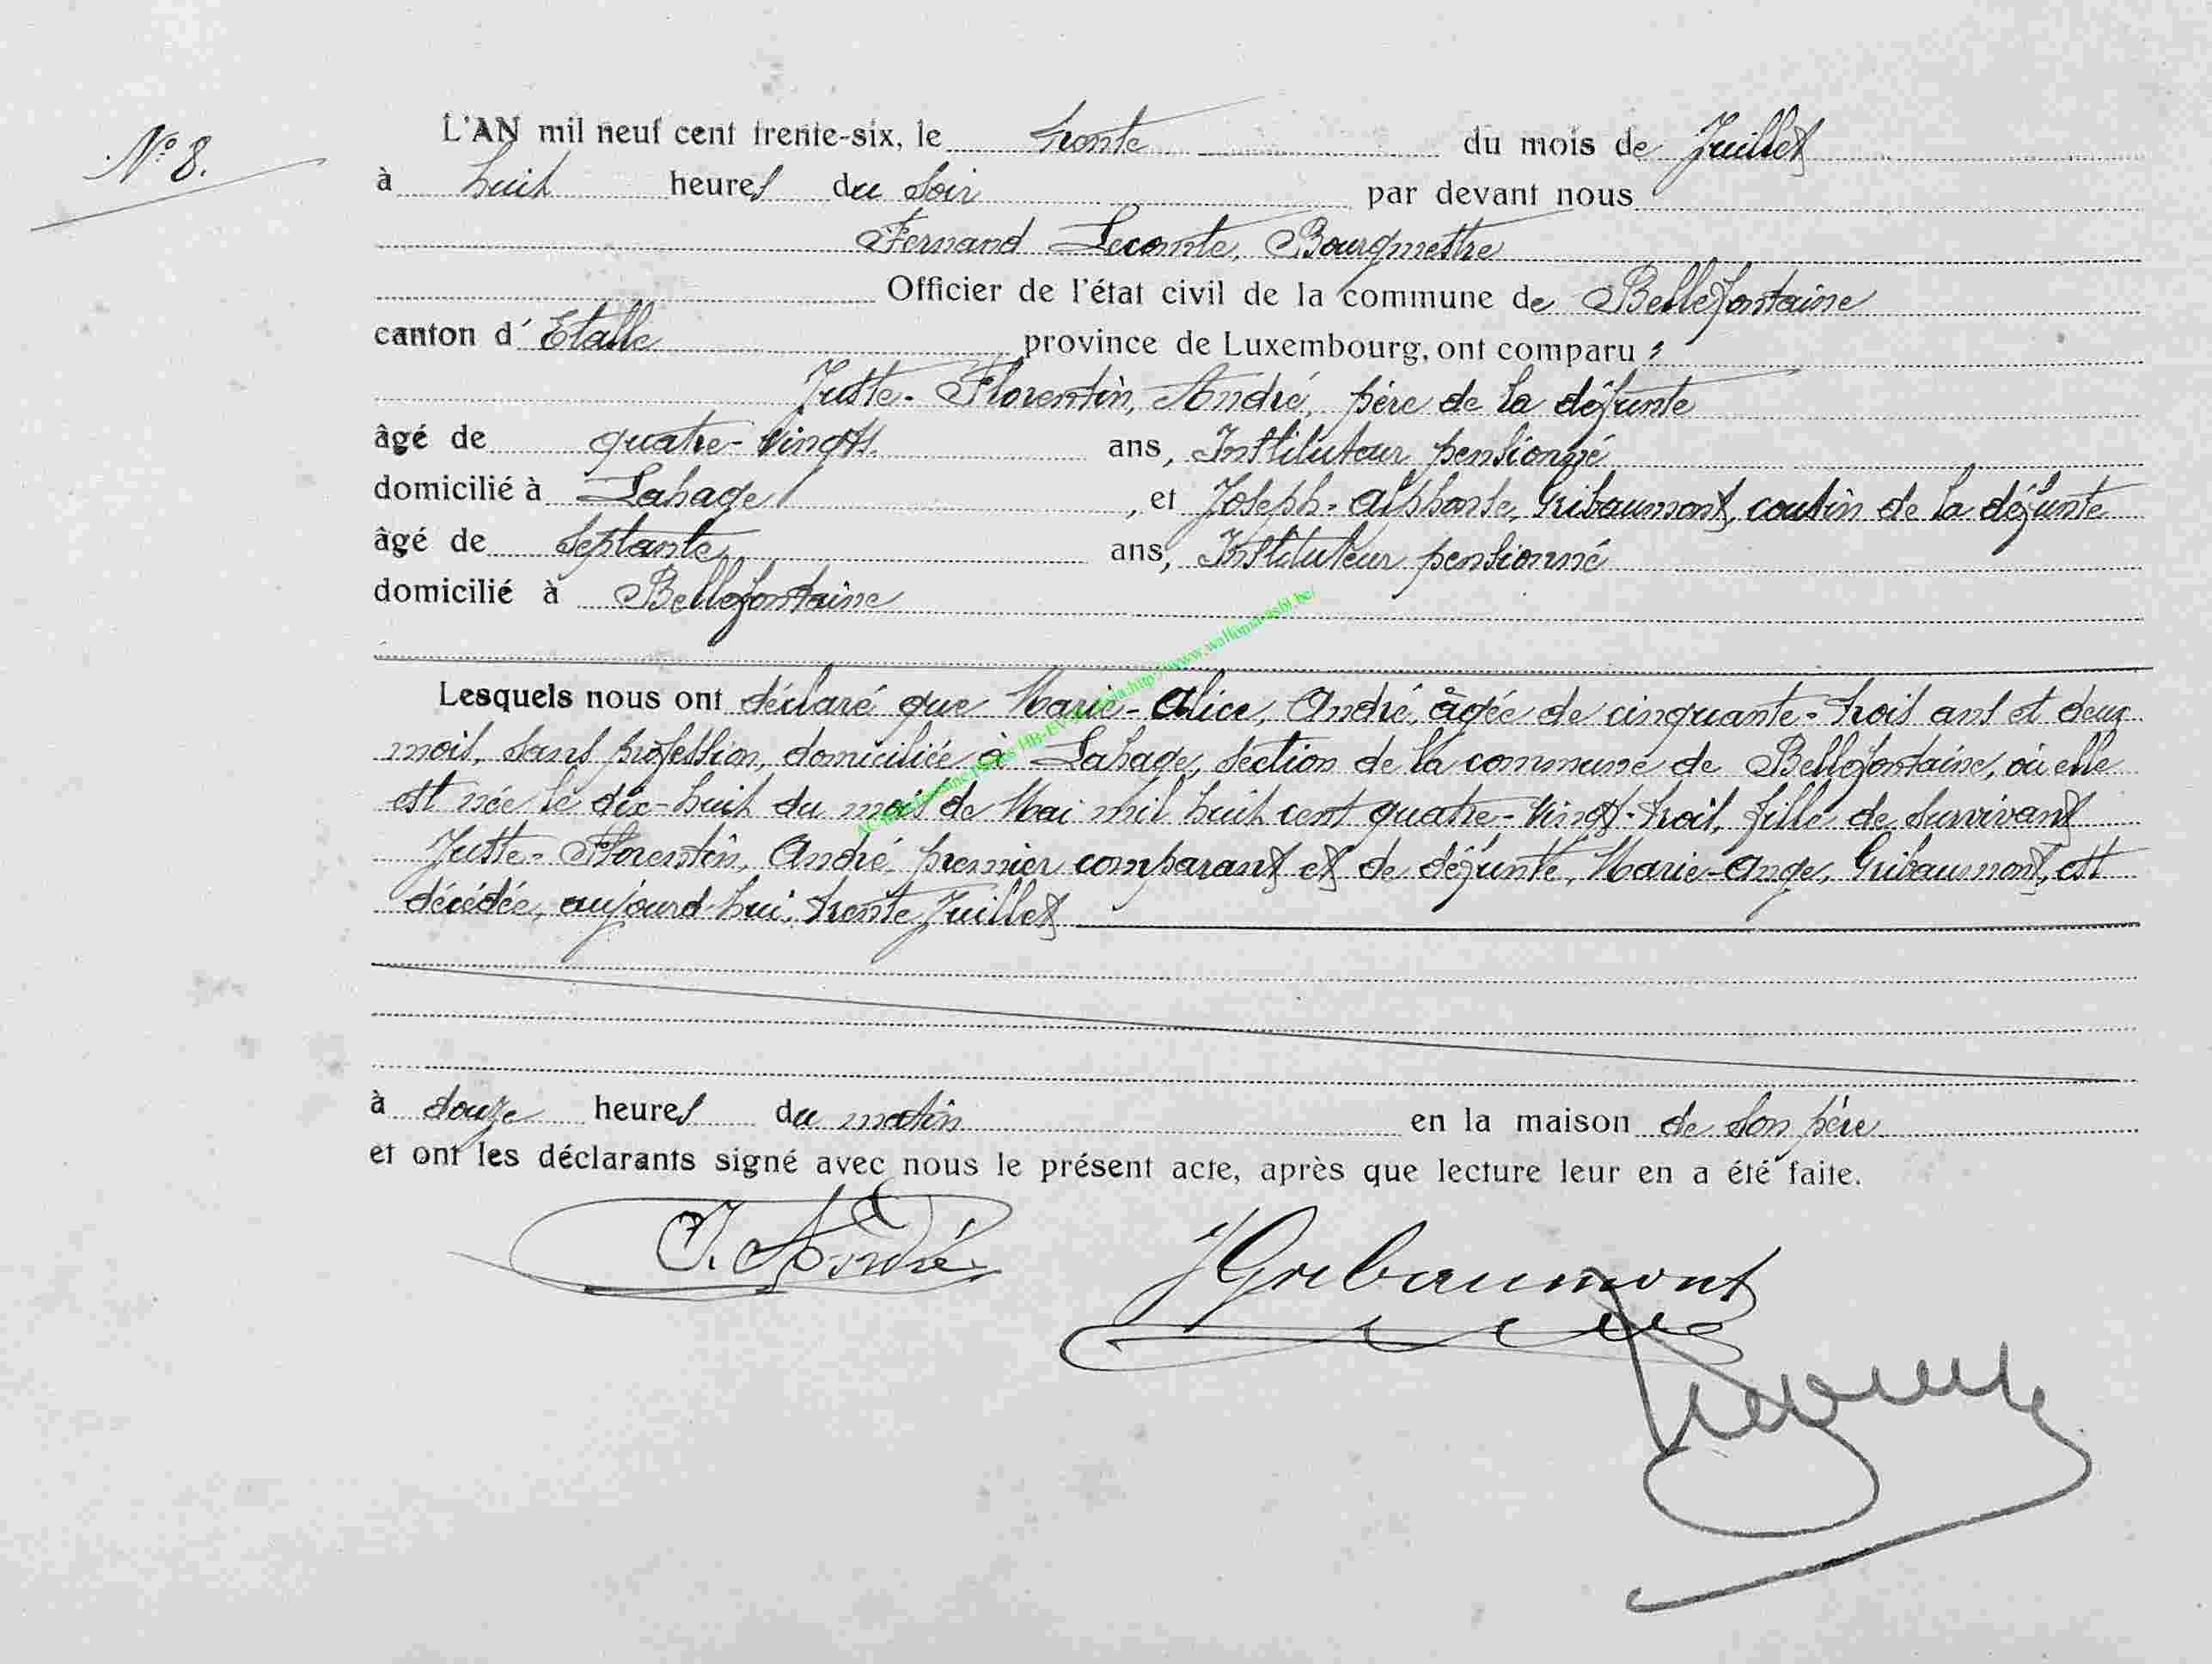 N° 8.
L'AN mil neuf cent trente-six, le trente du mois de Juillet
à huit heures du soir par devant nous
Fernand Lecomte, Bourgmestre
Officier de l'état civil de la commune de Bellefontaine
canton d' Etalle province de Luxembourg, ont comparu :
Juste-Florentin, André, père de la défunte
âgé de quatre-vingts ans, Instituteur pensionné
domicilié à Lahage, et Joseph-Alphonse, Gribaumont, cousin de la défunte
âgé de septante ans, Instituteur pensionné
domicilié à Bellefontaine
Lesquels nous ont déclaré que Marie-Alice, André, âgée de cinquante-trois ans et deux
mois, sans profession, domiciliée à Lahage, section de la commune de Bellefontaine, où elle
est née le dix-huit du mois de Mai mil huit cent quatre-vingt-trois, fille de survivant
Juste-Florentin, André, premier comparant et de défunte, Marie-Ange, Gribaumont, est
décédée, aujourd'hui, trente Juillet
à douze heures du matin en la maison de son père
et ont les déclarants signé avec nous le présent acte, après que lecture leur en a été faite.
J. André
JGribaumont